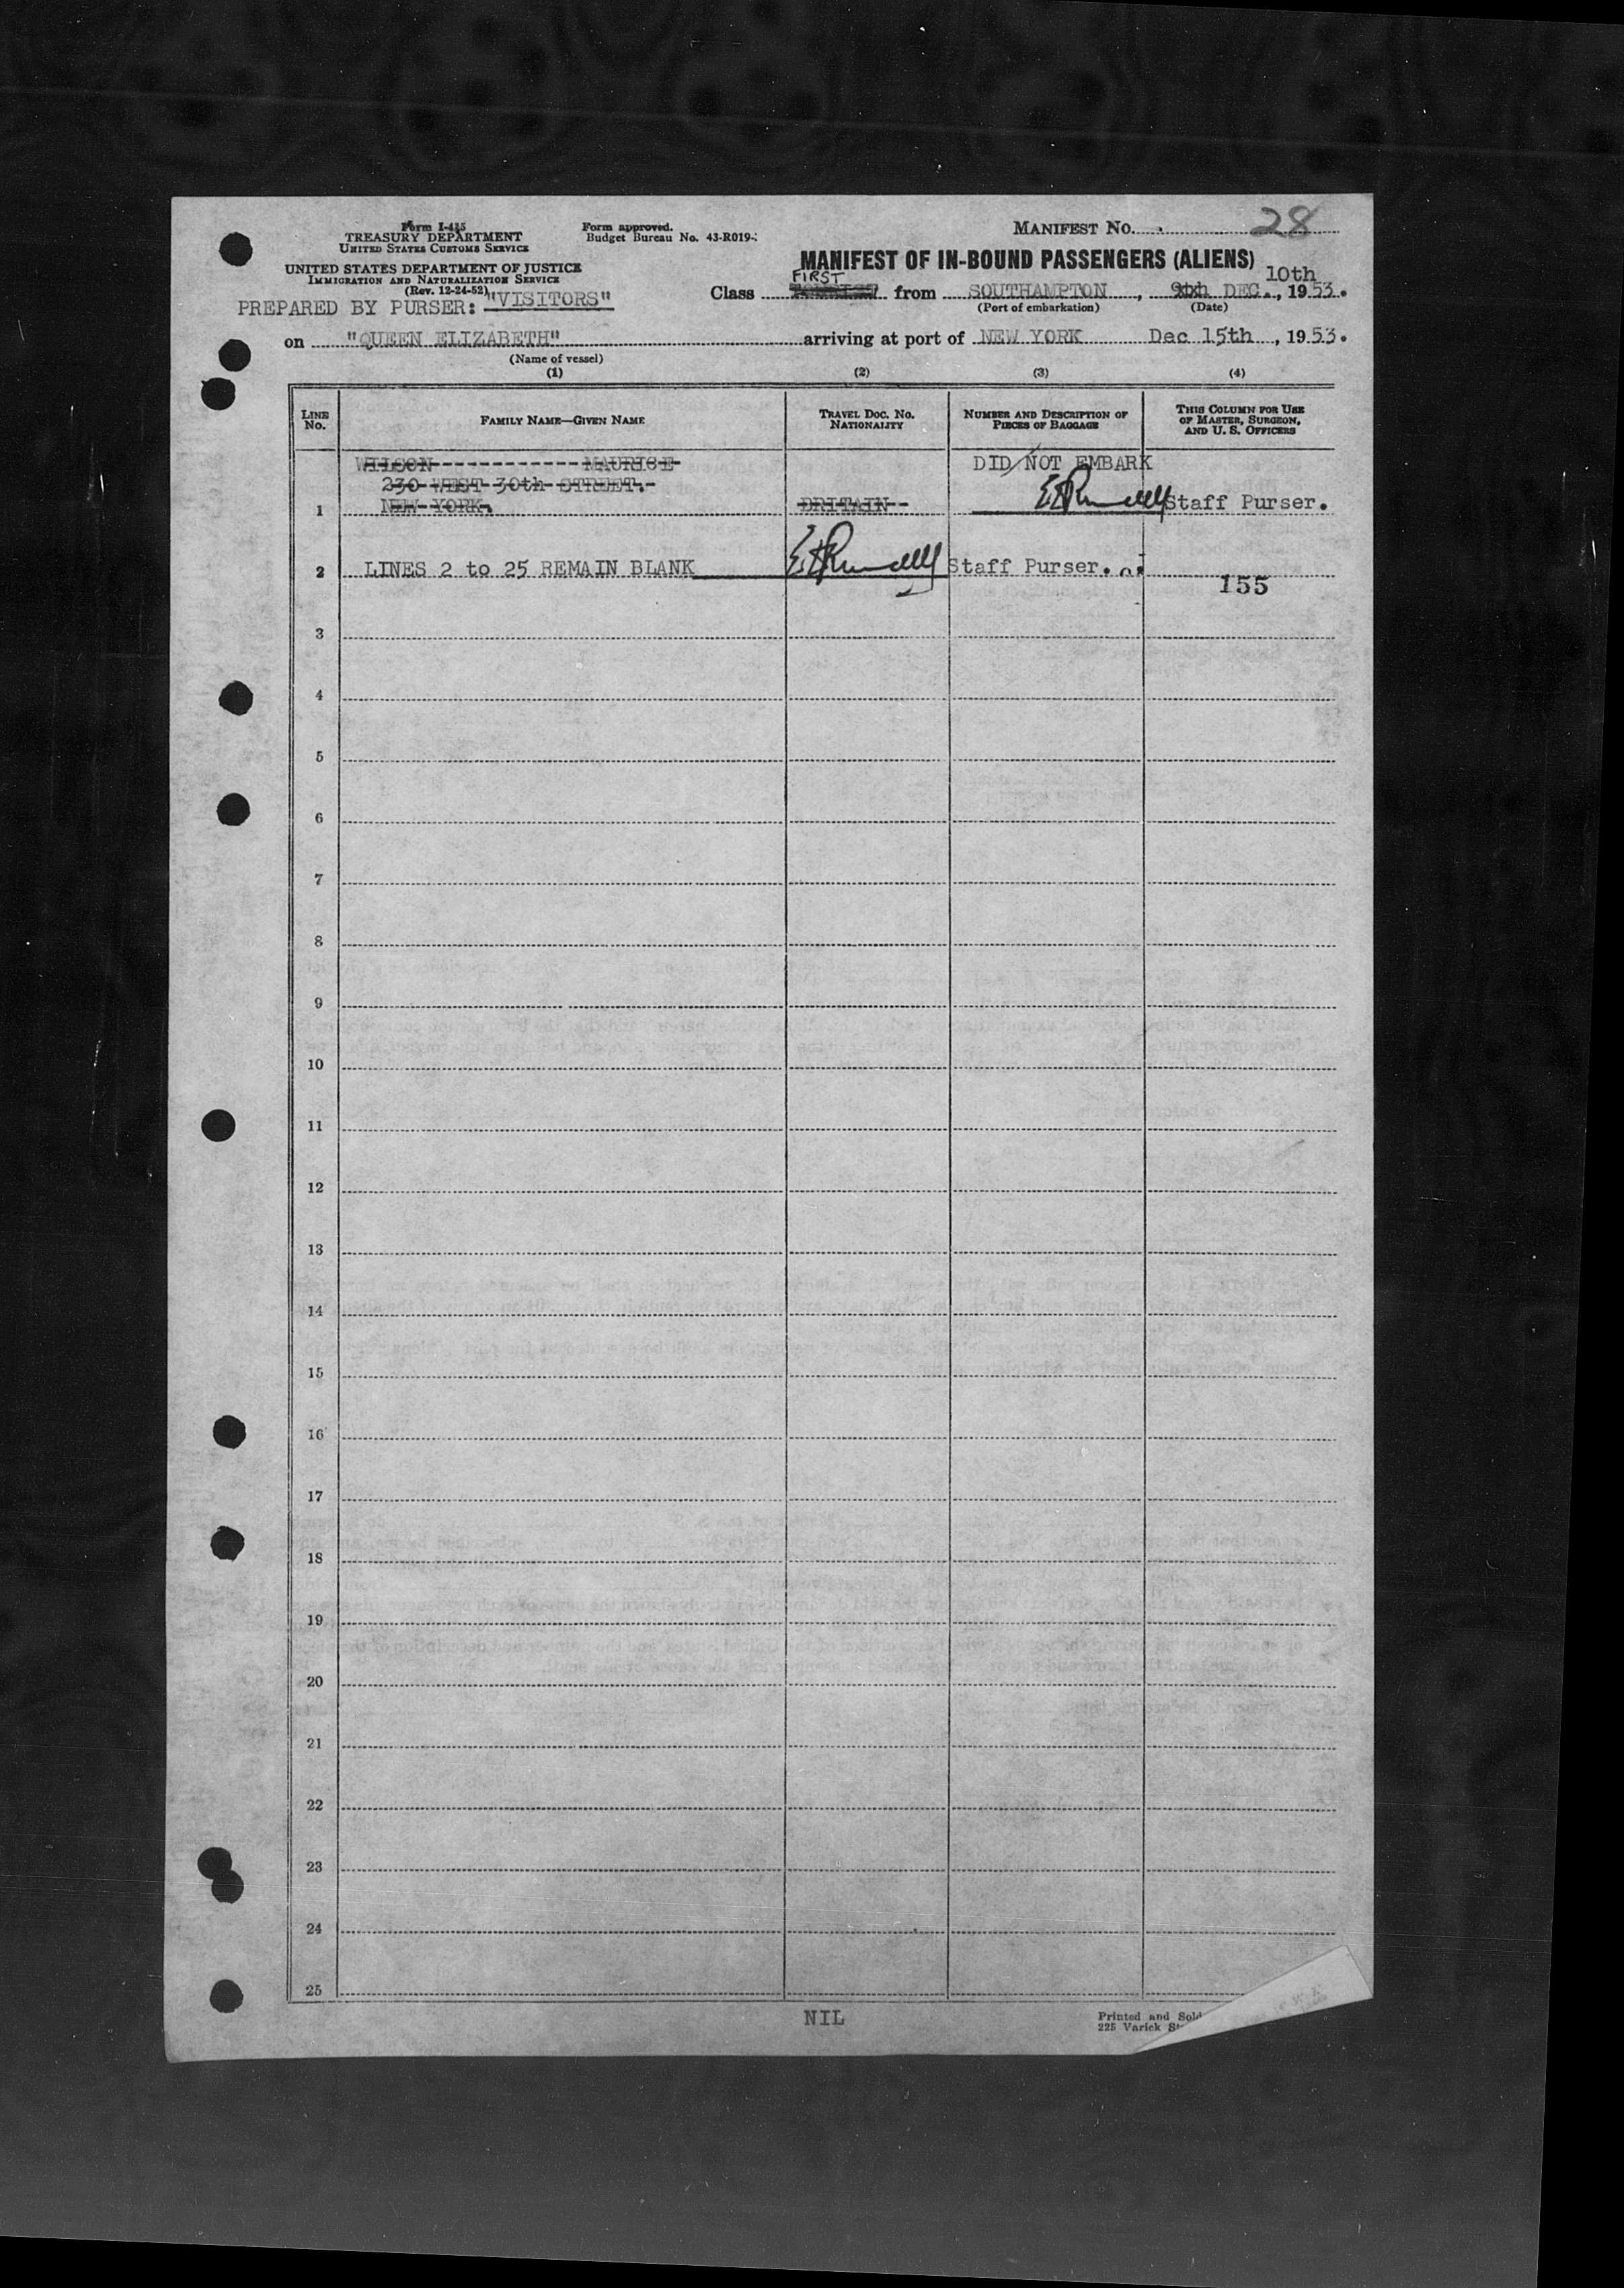 Form I-415
TREASURY DEPARTMENT
UNITED STATES CUSTOMS SERVICE
Form approved.
Budget Bureau No. 43-R019-
MANIFEST NO. 28
UNITED STATES DEPARTMENT OF JUSTICE
IMMIGRATION AND NATURALIZATION SERVICE
(Rev. 12-24-52)
MANIFEST OF IN-BOUND PASSENGERS (ALIENS)
PREPARED BY PURSER: "VISITORS"
Class FIRST from SOUTHAMPTON, 9th 10th DEC., 1953.
(Port of embarkation) (Date)
on "QUEEN ELIZABETH" arriving at port of NEW YORK Dec 15th, 1953.
(Name of vessel)
(1) (2) (3) (4)
LINE No. FAMILY NAME—GIVEN NAME TRAVEL DOC. NO. NATIONALITY NUMBER AND DESCRIPTION OF PIECES OF BAGGAGE THIS COLUMN FOR USE OF MASTER, SURGEON, AND U. S. OFFICERS
WILSON------------MAURICE DID NOT EMBARK
230 WEST 30th STREET.
1 NEW YORK. BRITAIN Staff Purser.
2 LINES 2 to 25 REMAIN BLANK Staff Purser.
155
3
4
5
6
7
8
9
10
11
12
13
14
15
16
17
18
19
20
21
22
23
24
25
NIL
Printed and Sold
225 Varick